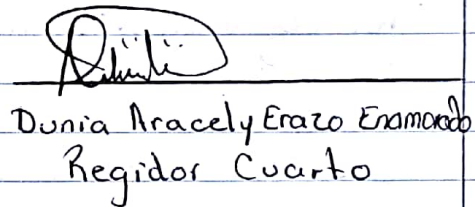 Dunia Aracely Erazo Enamorado
Regidor Cuarto